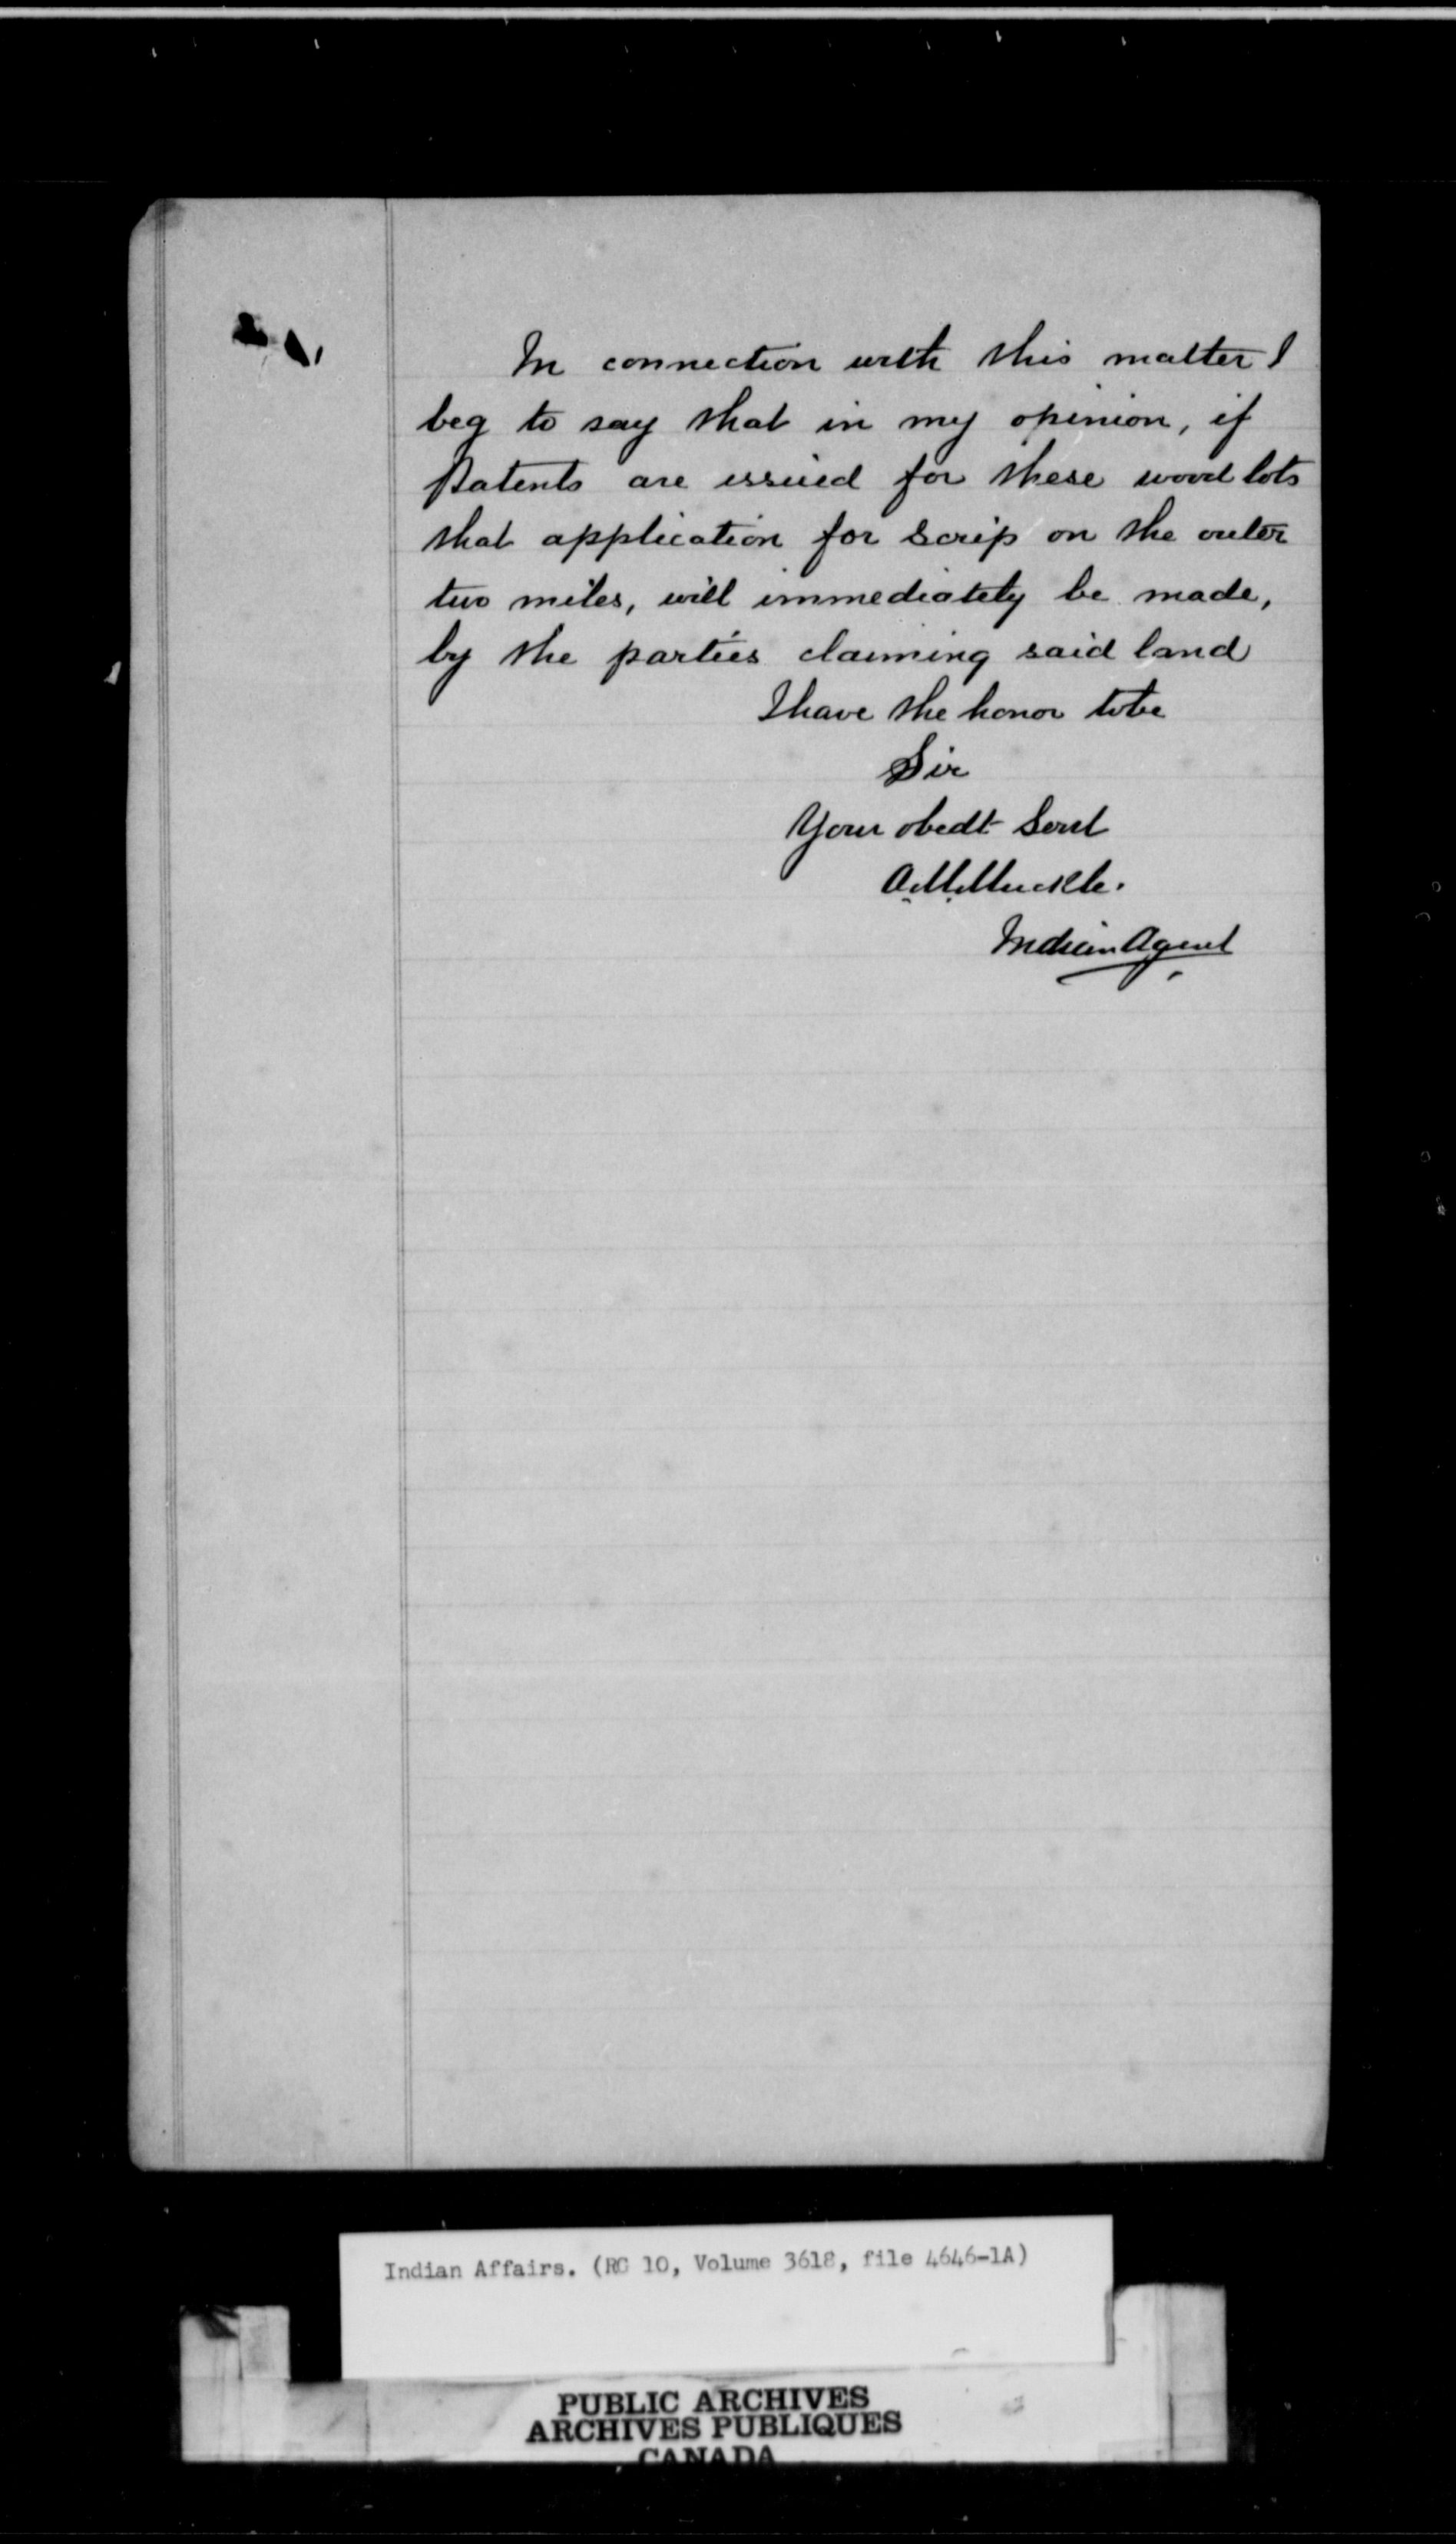 In connection with this matter I
beg to say that in my opinion, if
Patents are issued for these wood lots
that application for Scrip on the outer
two miles, will immediately be made,
by the parties claiming said land
I have the honor to be
Sir
Your obedt Servt
A. M. Muckle.
Indian Agent
Indian Affairs. (RG 10, Volume 3618, file 4646-1A)
PUBLIC ARCHIVES
ARCHIVES PUBLIQUES
CANADA